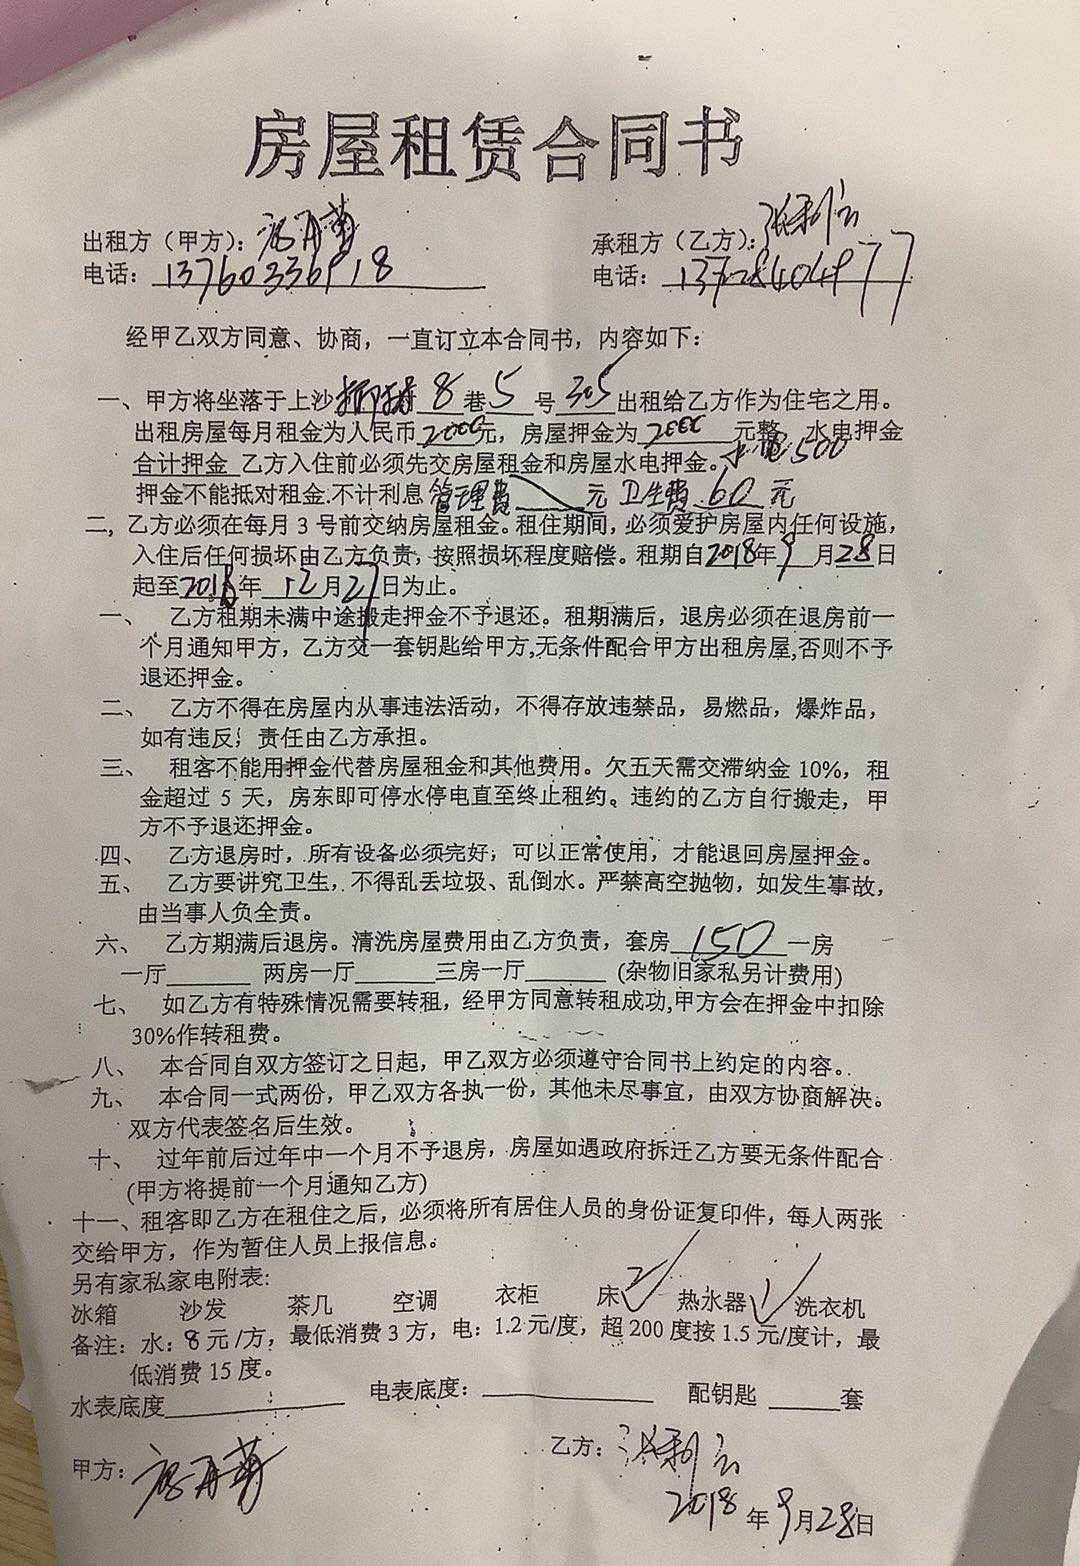 房屋租赁合同书
出租方（甲方）： 承租方（乙方）：张利
电话：13760336918 电话：13728404977
经甲乙双方同意、协商，一直订立本合同书，内容如下：
一、甲方将坐落于上沙 8 巷 5 号 305 出租给乙方作为住宅之用。
出租房屋每月租金为人民币 2000 元，房屋押金为 2000 元整 水电押金
合计押金 乙方入住前必须先交房屋租金和房屋水电押金。水电500
押金不能抵对租金.不计利息 管理费 元 卫生费 60 元
二，乙方必须在每月 3 号前交纳房屋租金。租住期间，必须爱护房屋内任何设施，
入住后任何损坏由乙方负责，按照损坏程度赔偿。租期自2018年 9 月28日
起至2018年 12 月27日为止。
一、 乙方租期未满中途搬走押金不予退还。租期满后，退房必须在退房前一
个月通知甲方，乙方交一套钥匙给甲方,无条件配合甲方出租房屋,否则不予
退还押金。
二、 乙方不得在房屋内从事违法活动，不得存放违禁品，易燃品，爆炸品，
如有违反；责任由乙方承担。
三、 租客不能用押金代替房屋租金和其他费用。欠五天需交滞纳金 10%，租
金超过 5 天，房东即可停水停电直至终止租约。违约的乙方自行搬走，甲
方不予退还押金。
四、 乙方退房时，所有设备必须完好；可以正常使用，才能退回房屋押金。
五、 乙方要讲究卫生，不得乱丢垃圾、乱倒水。严禁高空抛物，如发生事故，
由当事人负全责。
六、 乙方期满后退房。清洗房屋费用由乙方负责，套房 150 一房
一厅 两房一厅 三房一厅 (杂物旧家私另计费用)
七、 如乙方有特殊情况需要转租，经甲方同意转租成功,甲方会在押金中扣除
30%作转租费。
八、 本合同自双方签订之日起，甲乙双方必须遵守合同书上约定的内容。
九、 本合同一式两份，甲乙双方各执一份，其他未尽事宜，由双方协商解决。
双方代表签名后生效。
十、 过年前后过年中一个月不予退房，房屋如遇政府拆迁乙方要无条件配合
(甲方将提前一个月通知乙方)
十一、租客即乙方在租住之后，必须将所有居住人员的身份证复印件，每人两张
交给甲方，作为暂住人员上报信息。
另有家私家电附表:
冰箱 沙发 茶几 空调 衣柜 床 2 ✓ 热水器 1 ✓ 洗衣机
备注：水：8 元/方，最低消费 3 方，电：1.2 元/度，超 200 度按 1.5 元/度计，最
低消费 15 度。
水表底度 电表底度： 配钥匙 套
甲方： 乙方：张利
2018 年 9 月 28 日